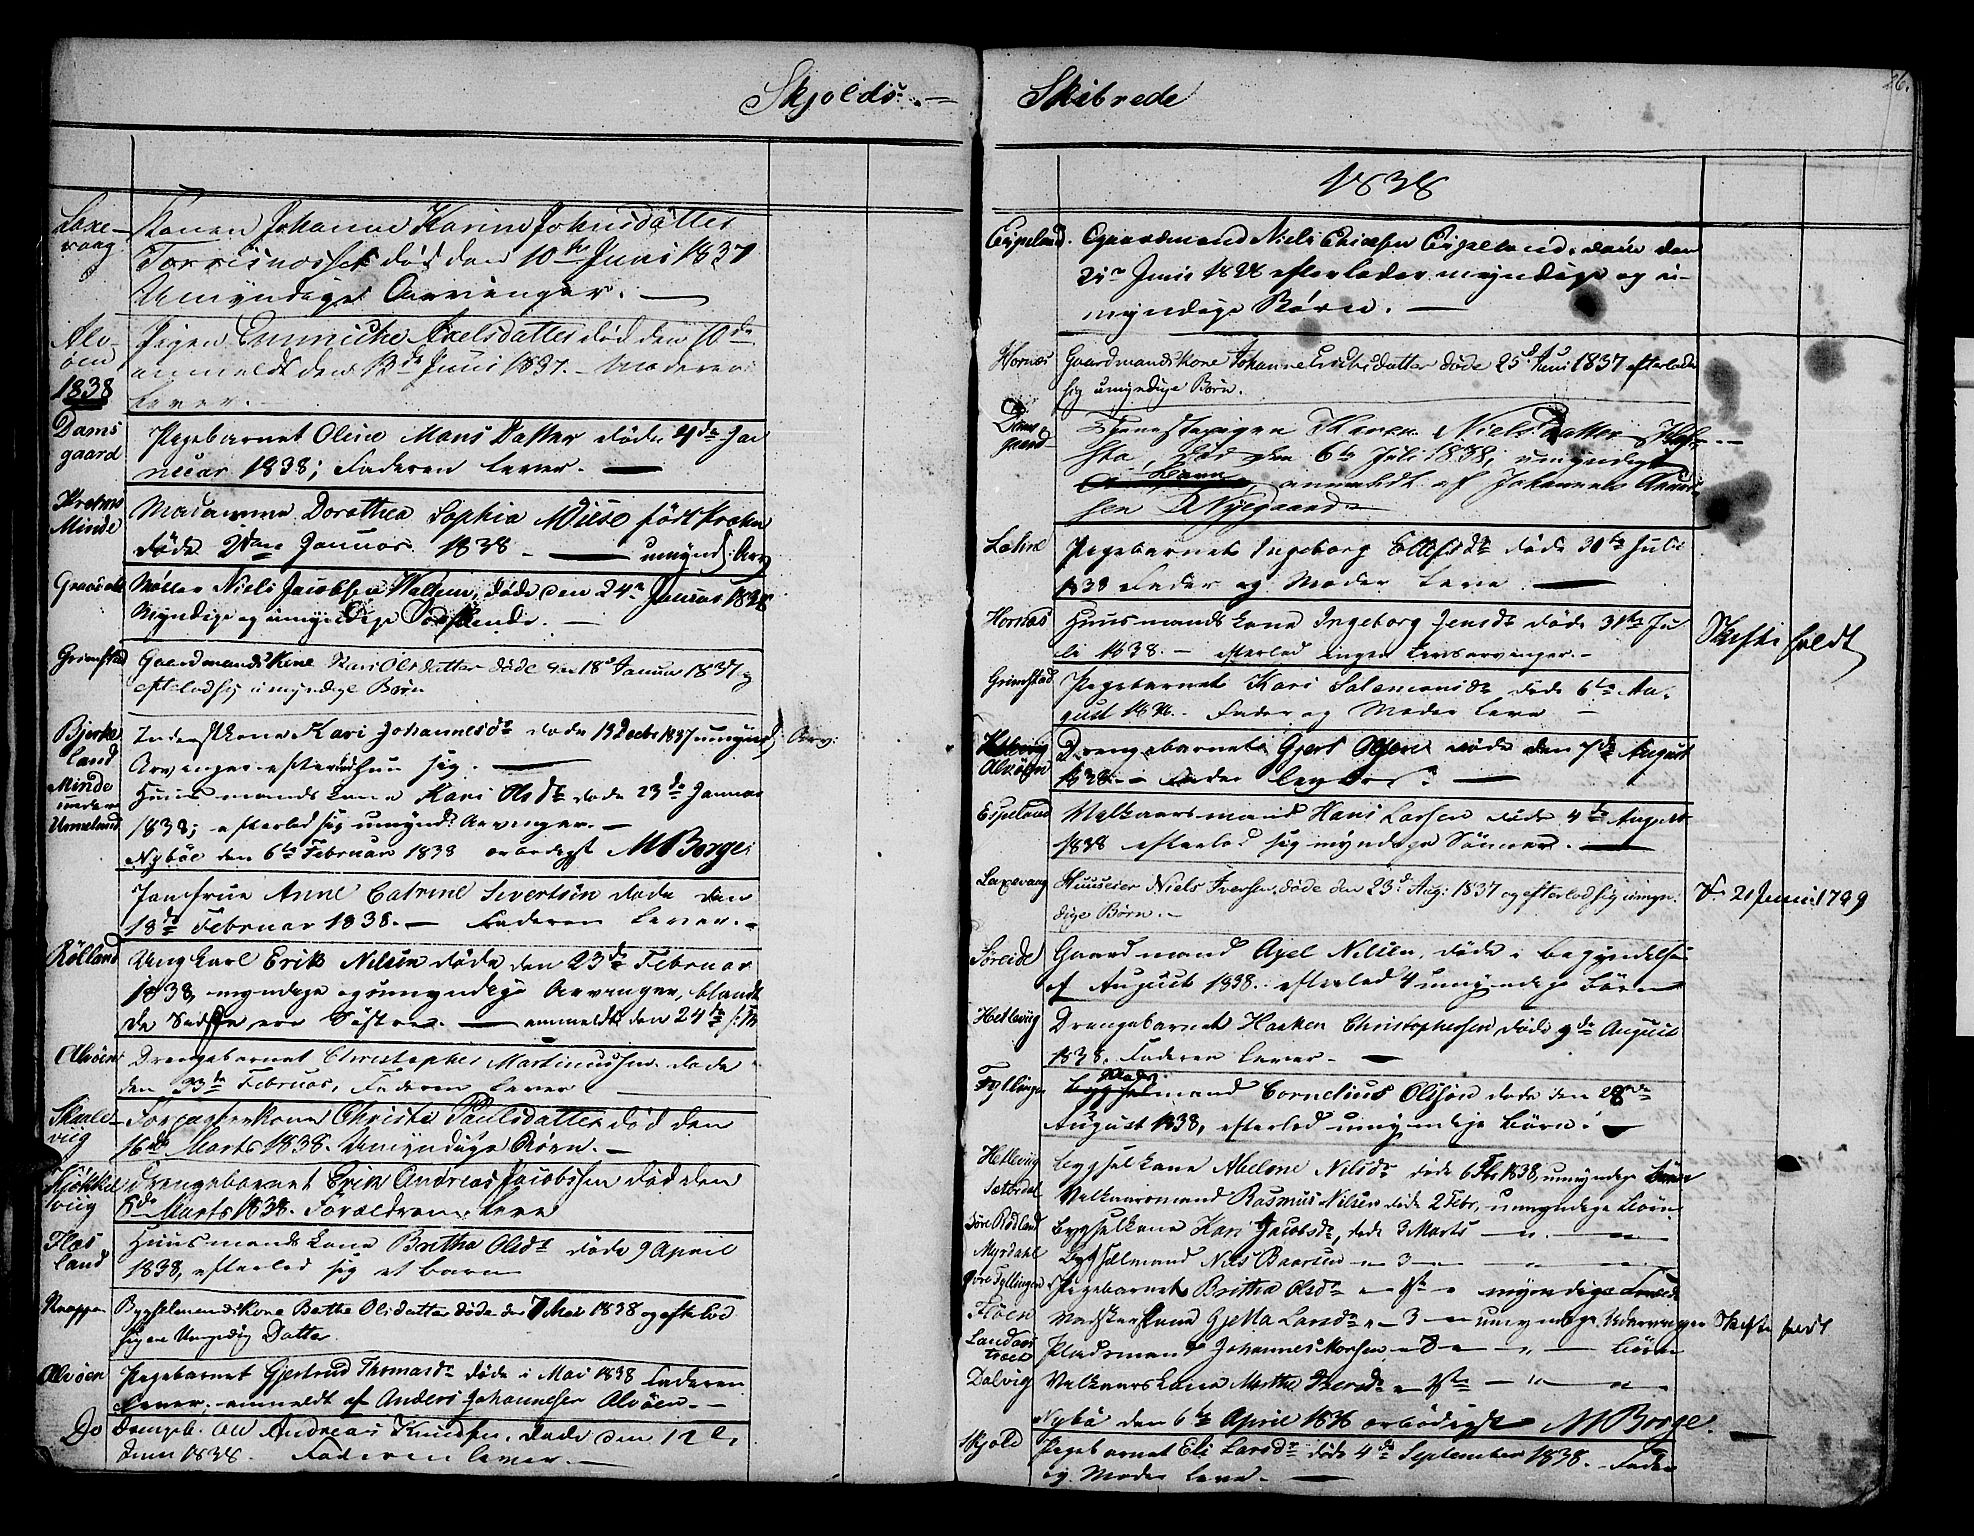 Skjolds
Laxe-
vaag
Konen Johanne Karine Johnsdatter
død den 10de Juni 1837
Umyndige Arvinger.
Alv-
øen
Pigen Emmiche Axelsdatter død den 10de
anmeldt den 13de Juni 1837. – Moderen
lever. –
1838
Dams
gaard
Pigebarnet Oline Mons Datter døde 4de Ja
nuar 1838; Faderen lever. –
Krohns
Minde
Madamme Dorothea Sophia Milse født Krohn
døde 2den Januar 1838 – umynd: Arv
Møller Niels Jacobsen Wallem, døde den 24de Januar 1838
Myndige og umyndige
Grimstad
Gaardmandskone Kari Olsdatter døde den 18de Januar 1837 og
efterlod sig umyndige Børn
Bjerke
land
Kari Johannesdr døde 19 Decbr 1837 umynd Arv:
Arvinger efterlod hun sig. –
Minde
Urmeland
Huusmandskone Kari Olsdr døde 23de Januar
1838; efterlod sig umynd: Arvinger. –
Nybøe den 6te Februar 1838 ærbødigst M Borge
Jomfrue Anne Catrine Sivertsen døde den
18de Februar 1838. – Faderen lever. –
Rølland
Ungkarl Erik Nilsen døde den 23de Februar
1838, myndige og umyndige Arvinger, blandt
de Sidste ere Søstre. – anmeldt den 24de
Alvøen
Drengebarnet Christopher Martinussen døde
den 23de Februar, Faderen lever
Skaale-
viig
Forpagterkone Christi Paulsdatter død den
16de Marts 1838. Umyndige Børn. –
Kjøkkel
viig
Drengebarnet Erik Andreas Jacobsen død den
Marts 1838. Forældrene leve
Fles
land
Huusmandskone Britha Olsdr døde 9 April
1838, efterlod sig et barn
Knappen
Bygselmandskone Bethe Olsdatter døde den 7 Mai 1838 og efterlod
sig en Umyndig Datter.
Alvøen
Pigebarnet Gjertrud Thomasdr døde i Mai 1838 Faderen
lever, anmeldt af Anders Johannesen Alvøen. –
Do
Drengeb. Ole Andreas Knudsen, døde den 12te
Juni 1838. Faderen lever. –
Skibrede
26.
1838
Espeland.
Gaardmand Niels Espeland, døde den
21de Juni 1838 efterlader myndige og u-
myndige Børn. –
Hornæs
Gaardmandskone Johanne døde 25de Juni 1837 efterlode
sig umyndige Børn.
Dams
gaard
Tjenestepigen Karen Niels Datter
død den 6te Juli 1838, umyndigt
Barn, anmeldt af Johannes
sen Nyegaard
Løhne
Pigebarnet Ingeborg Ellefsdr døde 30te Juli
1838 Fader og Moder leve. –
Hornæs
Huusmandskone Ingeborg Jensdr døde 31te Ju
li 1838. – efterlod ingen Livsarvinger. –
Skifte holdt
Grimstad
Pigebarnet Kari Salemonsdr døde 6te Au-
gust 1838. Fader og Moder leve –
Hetlevig
Alvøen
Drengebarnet Gjert Olsen døde den 7de August
1838. – Fader lever. –
Espeland
Velkaarsmand Hans Larsen døde 4de August
1838 efterlod sig myndige Sønner. –
Laxevaag
Huuseier Niels Iversen, døde den 23de Aug: 1837 og efterlod sig umyn
dige Børn. –
21 Juni
Søreide
Gaardmand Axel Nilsen, døde i begyndelsen
af August 1838. efterlod 4 umyndige Børn
Hetlevig
Drengebarnet Haaken Christophersen døde 9de August
1838. Faderen lever –
Fyllingen
mand Cornelius Olsen døde den 28de
August 1838, efterlod umyndige børn. –
Hetlevig
Bygselkone Abelone Nilsdr døde 6 Fbr 1838, umyndige Børn
Sætterdal
Velkaarsmand Rasmus Nilsen døde 2 Febr, umyndige Børn
Søre Rødland
Bygselkone Kari Jacobsdr, døde 3 Marts – " –
Myrdahl
Bygselmand Nils Baarsen – 3 – "
Øvre Fyllingen
Pigebarnet Britha Olsdr myndige
Fløen
Gjetta Larsdr – 3 – umyndige Udarvinger Skifte holdt
Landaas
træet
Pladsmand Johannes Monsen – " – børn
Dalvig
Velkaarskone Marthe – " –
Nybø den 6te April 1838 ærbødigst M Borge.
Skjold
Pigebarnet Eli Larsdr døde 4de September 1838. – Fader
og Moder leve. –